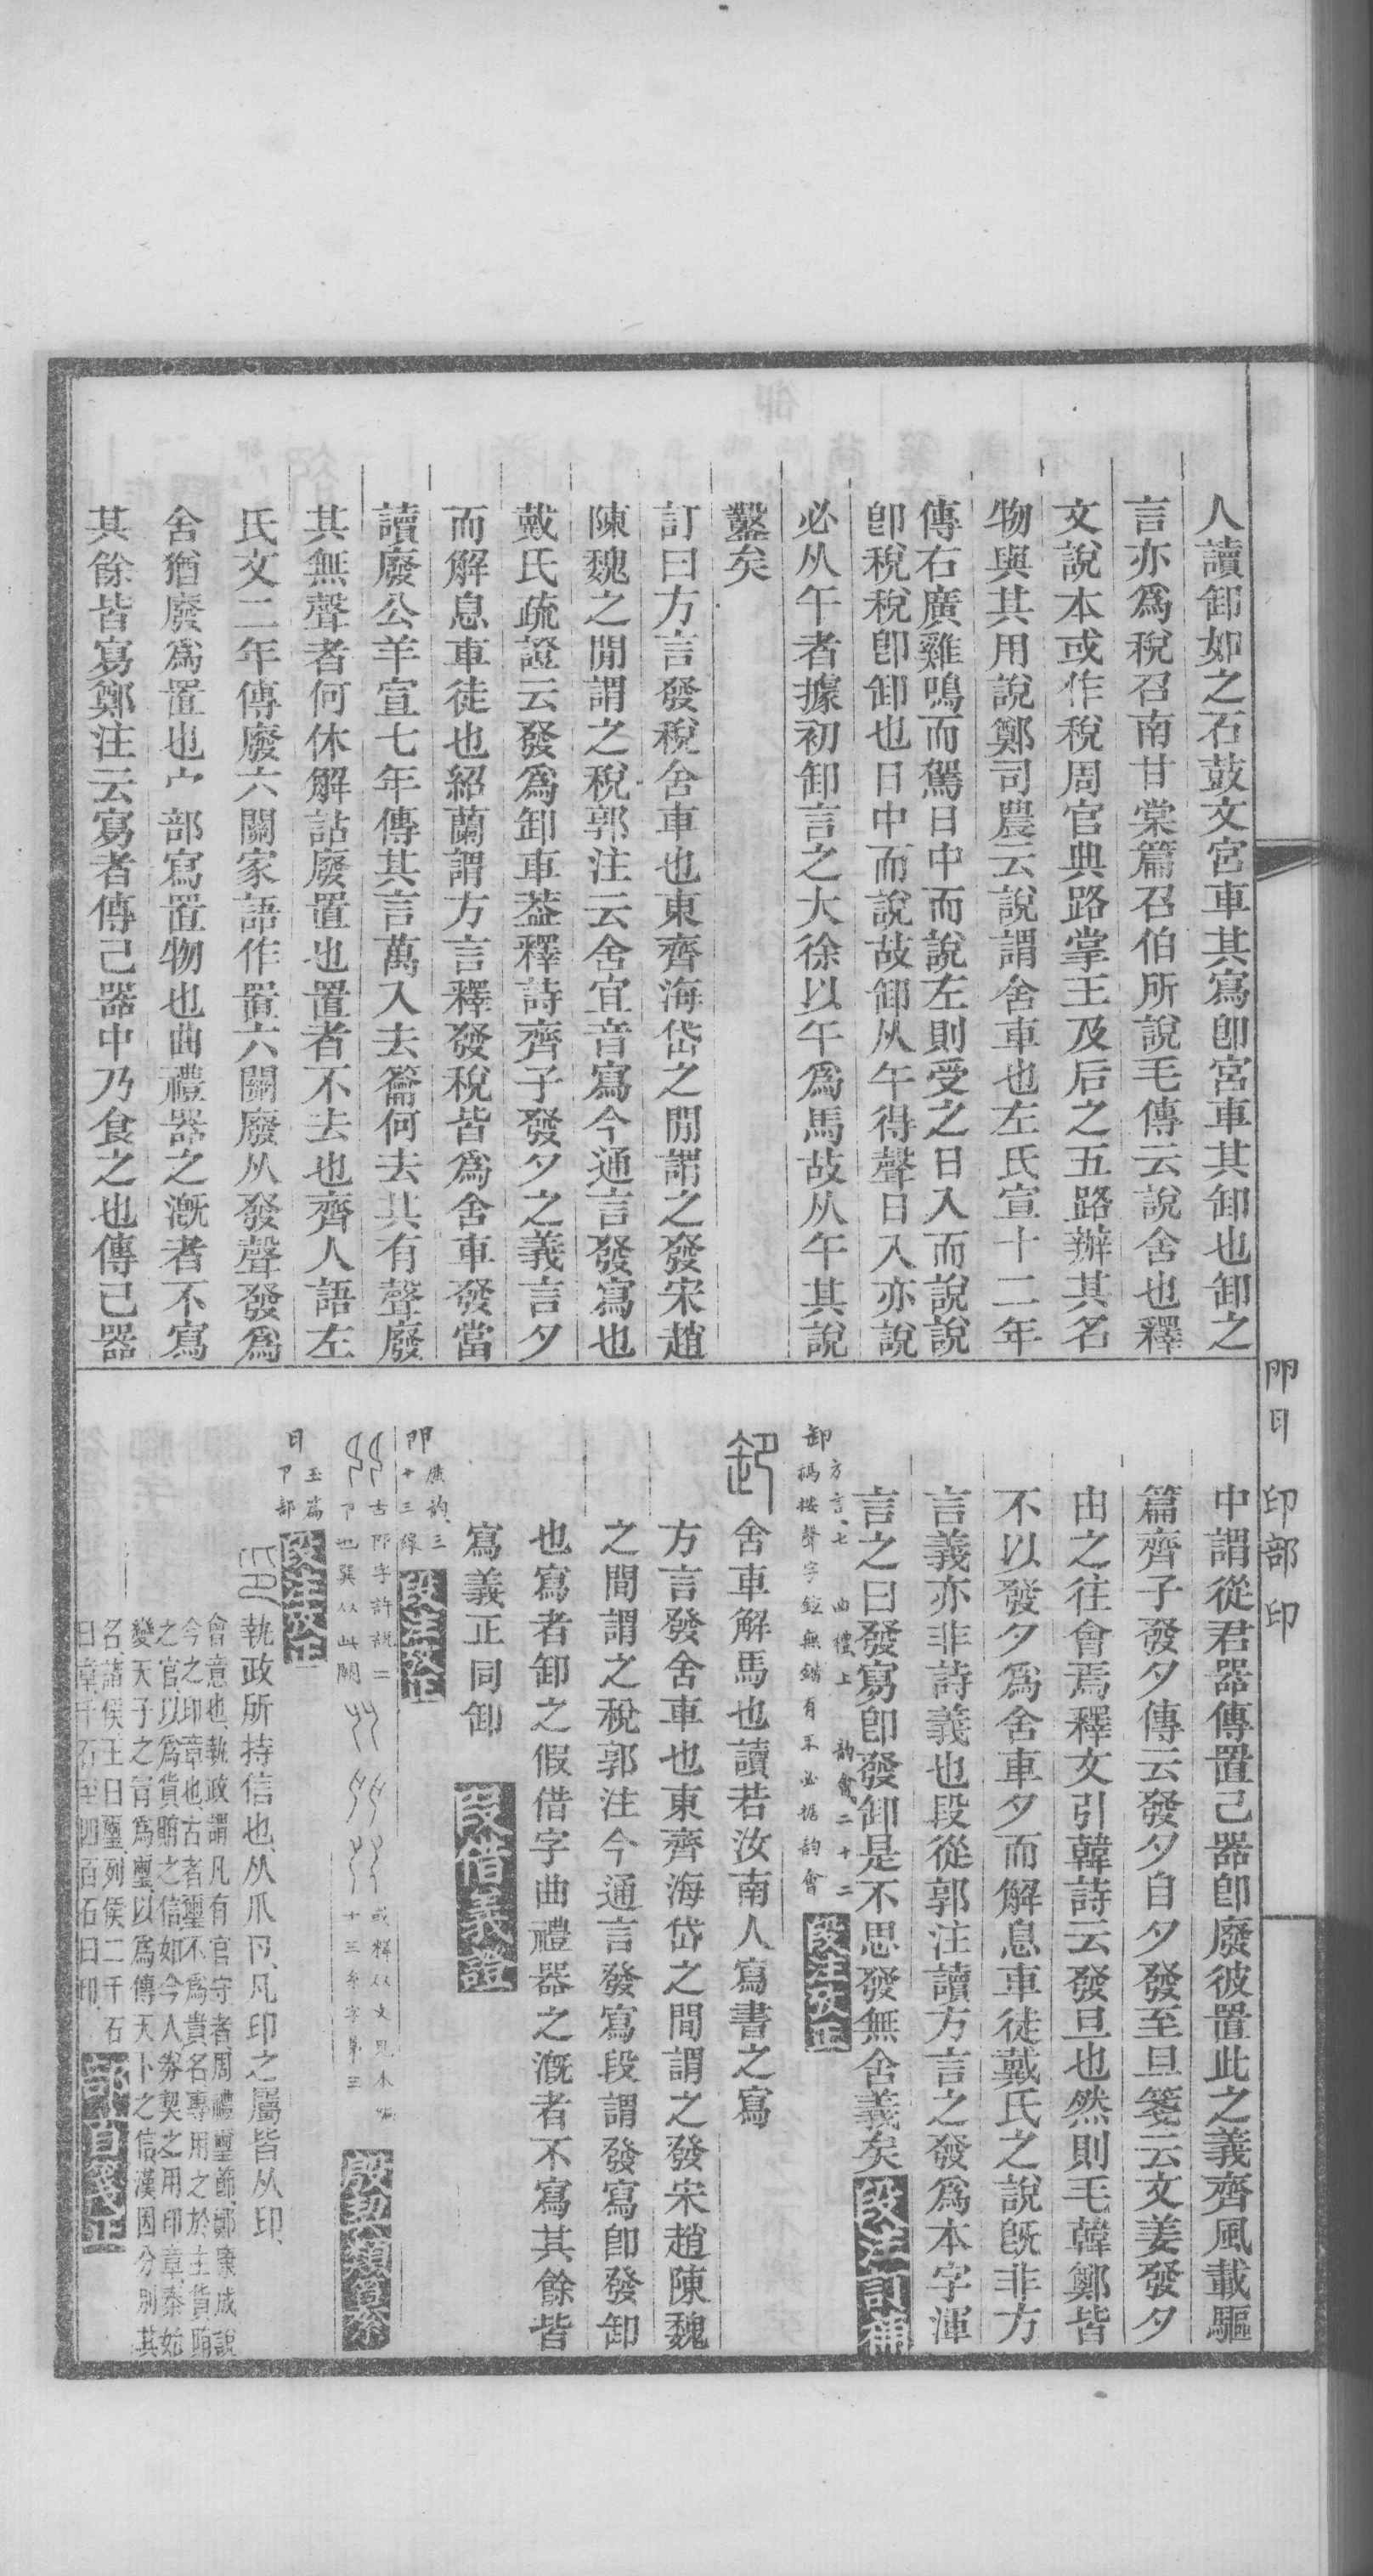 人讀卸如之石鼓文宮車其寫卽宮車其卸也卸之
言亦爲稅召南甘棠篇召伯所說毛傳云說舍也釋
文說本或作稅周官典路掌王及后之五路辦其名
物與其用說鄭司農云說謂舍車也左氏宣十二年
傳右廣雞鳴而駕日中而說左則受之日入而說說
卽稅稅卽卸也日中而說故卸从午得聲日入亦說
必从午者據初卸言之大徐以午爲馬故从午其說
鑿矣
訂曰方言發稅舍車也東齊海岱之閒謂之發宋趙
陳魏之閒謂之稅郭注云舍宜音寫今通言發寫也
戴氏疏證云發爲卸車葢釋詩齊子發夕之義言夕
而解息車徒也紹蘭謂方言釋發稅皆爲舍車發當
讀廢公羊宣七年傳其言萬入去籥何去其有聲廢
其無聲者何休解詁廢置也置者不去也齊人語左
氏文二年傳廢六關家語作置六關廢从發聲發爲
舍猶廢爲置也宀部寫置物也曲禮器之漑者不寫
其餘皆寫鄭注云寫者傳己器中乃食之也傳己器
中謂從君器傳置己器卽廢彼置此之義齊風載驅
篇齊子發夕傳云發夕自夕發至旦箋云文姜發夕
由之往會焉釋文引韓詩云發旦也然則毛韓鄭皆
不以發夕爲舍車夕而解息車徒戴氏之說旣非方
言義亦非詩義也段從郭注讀方言之發爲本字渾
言之曰發寫卽發卸是不思發無舍義矣 段注訂補
卸 方言、七 曲禮上 韵會、二十二
禡 按聲字鉉無鍇有不必據韵會 段注攷正
卸 舍車解馬也讀若汝南人寫書之寫
方言發舍車也東齊海岱之間謂之發宋趙陳魏
之間謂之稅郭注今通言發寫段謂發寫卽發卸
也寫者卸之假借字曲禮器之漑者不寫其餘皆
寫義正同卸 段借義證
卩 廣韵、三十三線 段注攷正
古卽字許說二
卩也巽从此闕 十三 字第三
玉篇卩部 段注攷正
印 執政所持信也、从爪卪、凡印之屬皆从印、
會意也、執政謂凡有官守者周禮璽節、鄭康成說
今之印章也、古者璽不爲貴名專用之於主貨賄
之官以爲貨賄之信如今人券契之用印章、秦始
變天子之官爲璽、以爲傳天下之信、漢因分別其
名、諸侯王曰璽、列侯二千石
曰章千石至四百石曰印、
卩日 印部印